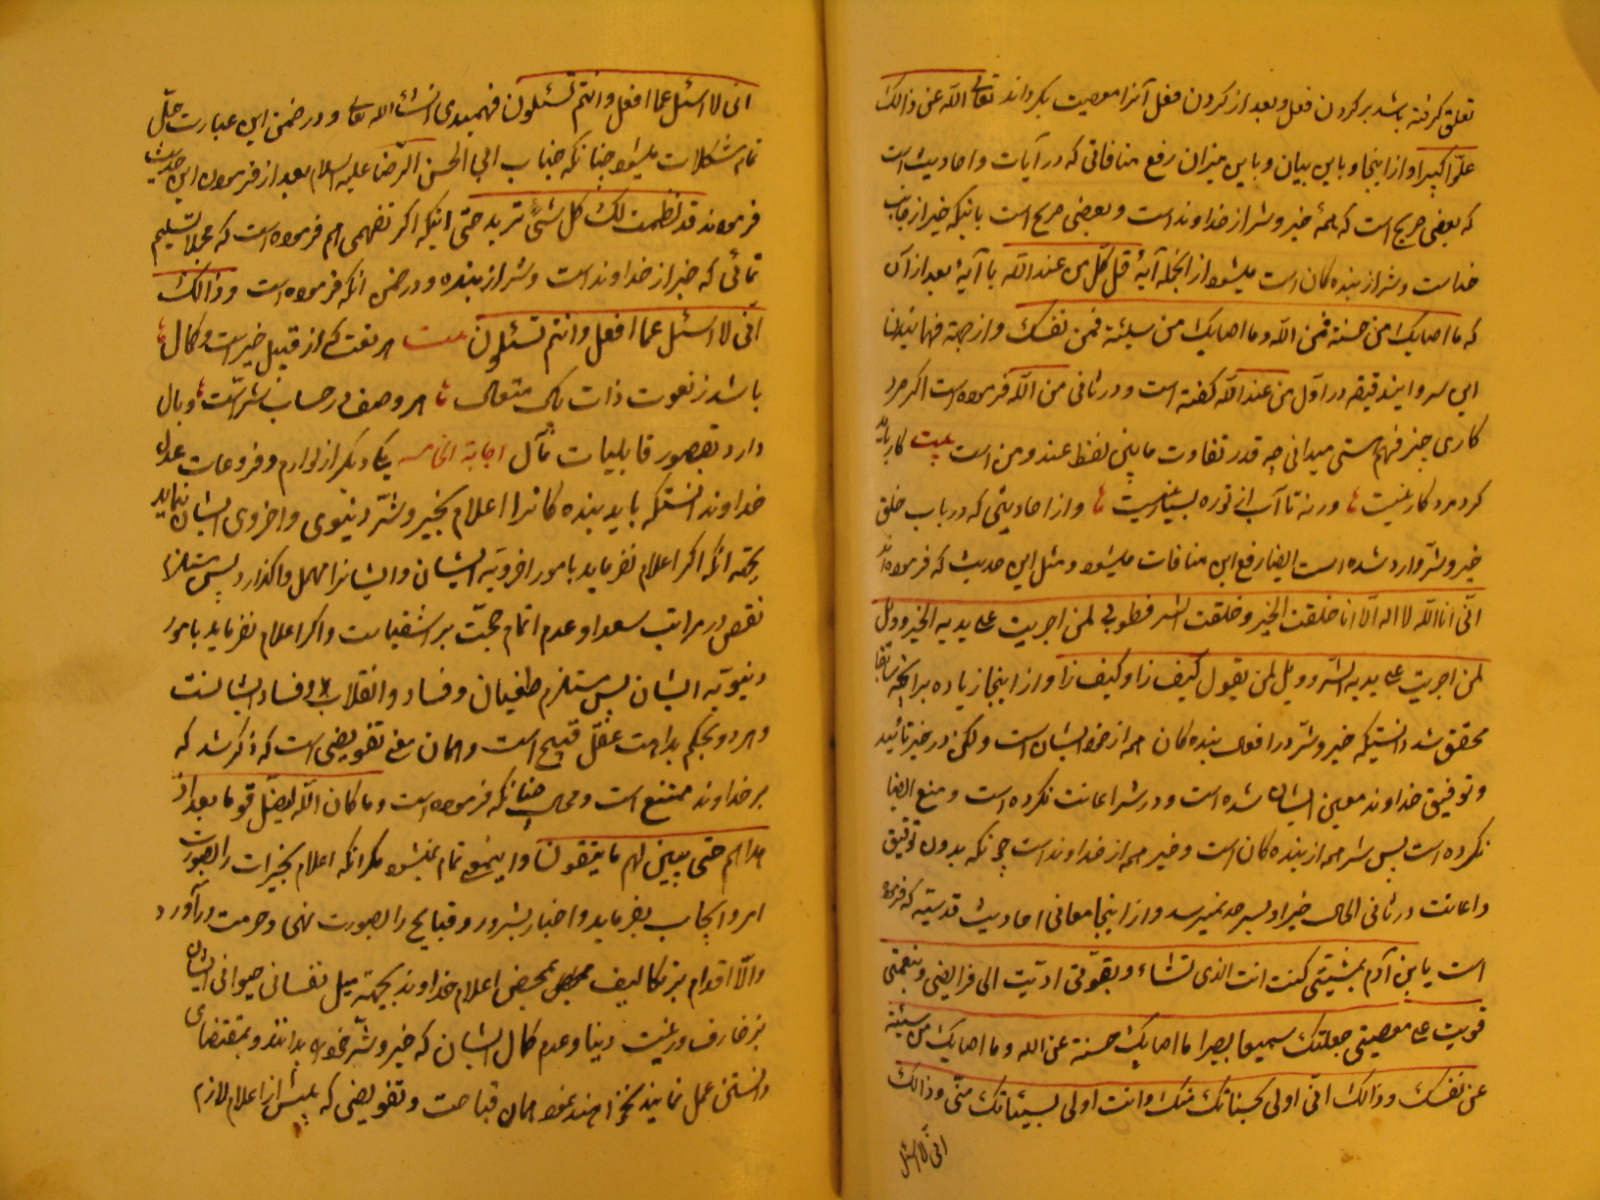 تعلق گرفته باشد بر کردن فعل و بعد از کردن فعل آنرا معصیت بگرداند تعالی الله عن ذالک
علوّاً کبیرا و از اینجا و باین بیان و باین میزان رفع منافاتی که در آیات و احادیث است
که بعضی صریح است که همهٔ خیر و شر از خداوند است و بعضی صریح است باینکه خیر از جانب
خداست و شر از بنده کان است میشود از انجمله آیهٔ قل کل من عند الله با آیهٔ بعد از آن
که ما اصابک من حسنة فمن الله و ما اصابک من سیئة فمن نفسک و از جهة فهمانیدن
این سر و ایندقیقه در اول من عند الله گفته است و در ثانی من الله فرموده است اگر مرد
کاری جیز فهم هستی میدانی چه قدر تفاوت مابین لفظ عند و من است بیت کار باید
کرد مرد کار نیست ورنه تا آب از تو ره بسیار نیست و از احادیثی که در باب خلق
خیر و شر وارد شده است ایضا رفع این منافات میشود و مثل این حدیث که فرموده اند
انّی انا الله لا اله الّا انا خلقت الخیر و خلقت الشر فطوبی لمن اجریت علی یدیه الخیر و ویل
لمن اجریت علی یدیه الشر و ویل لمن یقول کیف ذا و کیف ذا و از اینجا زیاده بر آنچه سابقا
محقق شد دانستیکه خیر و شر در افعال بنده کان همه از خود ایشان است و لکن در خیر تائید
و توفیق خداوند معین ایشان شده است و در شر اعانت نکرده است و منع ایضا
نکرده است پس شر همه از بنده کان است و خیر همه از خداوند است چونکه بدون توفیق
و اعانت در ثانی الحال خیر او بسر حد نمیرسد و از اینجا معانی احادیث قدسیّه که فرموده
است یابن آدم بمشیّتی کنت انت الذی تشاء و بقوّتی ادّیت الی فرایضی و بنعمتی
قویت علی معصیتی جعلتک سمیعا بصیرا ما اصابک حسنة عن الله و ما اصابک من سیئة
عن نفسک و ذالک انّی اولی بحسناتک منک و انت اولی بسیئاتک منّی و ذالک
انّی لا اسئل
انی لا اسئل عما افعل و انتم تسئلون فهمیدی انشاء الله تعالی و در ضمن این عبارت حلّ
تمام مشکلات میشود چنانکه جناب ابی الحسن الرّضا علیه السلام بعد از فرمودن این حدیث
فرمودند قد نظمت لک کل شیئ ترید حتی اینکه اگر نفهمی هم فرموده است که مجملا تسلیم
نمائی که خیر از خداوند است و شر از بنده و در ضمن آنکه فرموده است و ذالک
انّی لا اسئل عما افعل و انتم تسئلون بیت هر نعت که از قبیل خیر است و کمال
باشد ز نعوت ذات پاک متعال هر وصف در حساب شرّ است و وبال
دارد بقصور قابلیات مآل اجابة الخامسه یکی دیگر از لوازم و فروعات عدل
خداوند آنستکه باید بنده کانرا اعلام بخیر و شرّ دنیوی و اخروی ایشان نماید
بجهة آنکه اگر اعلام نفرماید بامور اخرویّه ایشان و ایشانرا مهمل واگذارد پس مستلزم
نقص در مراتب سعدا و عدم اتمام حجّت بر اشقیاست و اگر اعلام نفرماید بامور
دنیویّه ایشان پس مستلزم طغیان و فساد و انقلاب و فساد ایشانست
و هر دو بحکم بداهت عقل قبیح است و همان معنی تفویضی است که ذکر شد که
بر خداوند ممتنع است و محال چنانکه فرموده است و ما کان الله لیضلّ قوما بعد اذ
هداهم حتی یبیّن لهم ما یتقون و اینمعنی تمام نمیشود مگر آنکه اعلام بخیرات را بصورت
امر و ایجاب بفرماید و اخبار بشرور و قبایح را بصورت نهی و حرمت درآورد
والّا اقدام بر تکالیف بمحض اعلام خداوند بجهة میل نفسانی حیوانی ایشان
بزخارف و رغبت دنیا و عدم کمال ایشان که خیر و شرّ خود را بدانند و بمقتضای
دانستن عمل نمایند نخواهند نمود همان قباحت و تفویضی که پیش از اعلام لازم